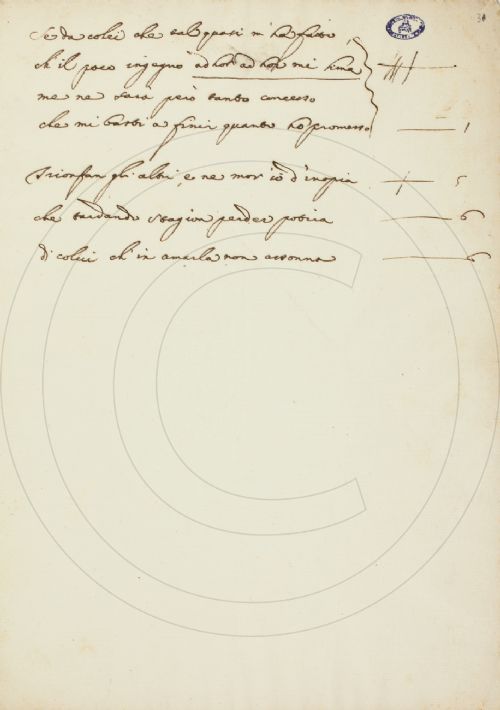 Se da colei che tal quasi m'ha fatto
ch'il poco ingegno ad hor ad hor mi lima
me ne sarà però tanto concesso
che mi basti a finir quanto ho promesso 1
Trionfan gli altri, e ne mor io d'inopia 5
che tardando stagion perder potria 6
di colei ch'in amarla non assonna 6